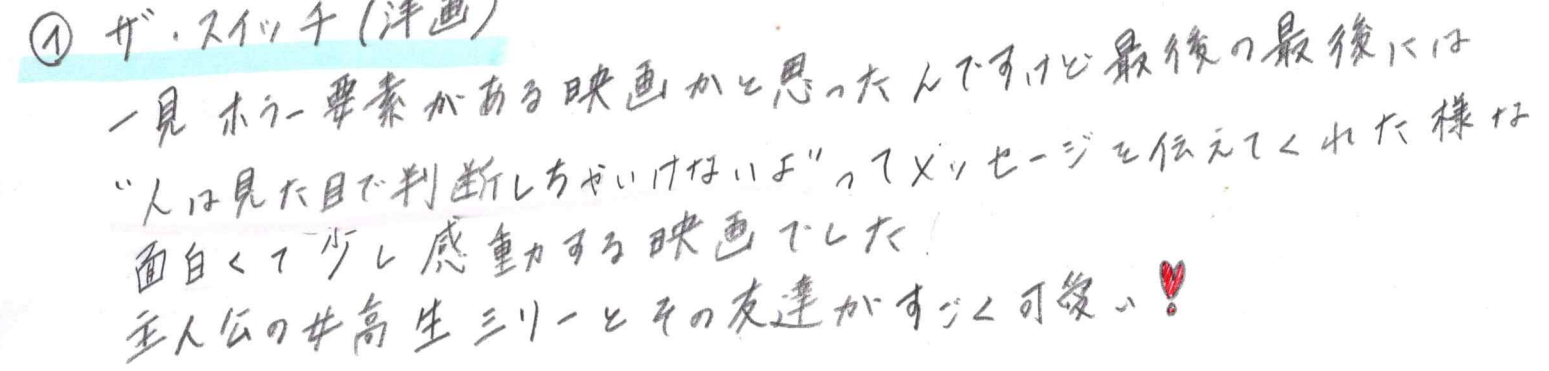 ① ザ・スイッチ(洋画)
一見ホラー要素がある映画かと思ったんですけど最後の最後には
"人は見た目で判断しちゃいけないよ"ってメッセージを伝えてくれた様な
面白くて少し感動する映画でした!
主人公の女高生ミリーとその友達がすごく可愛い❣